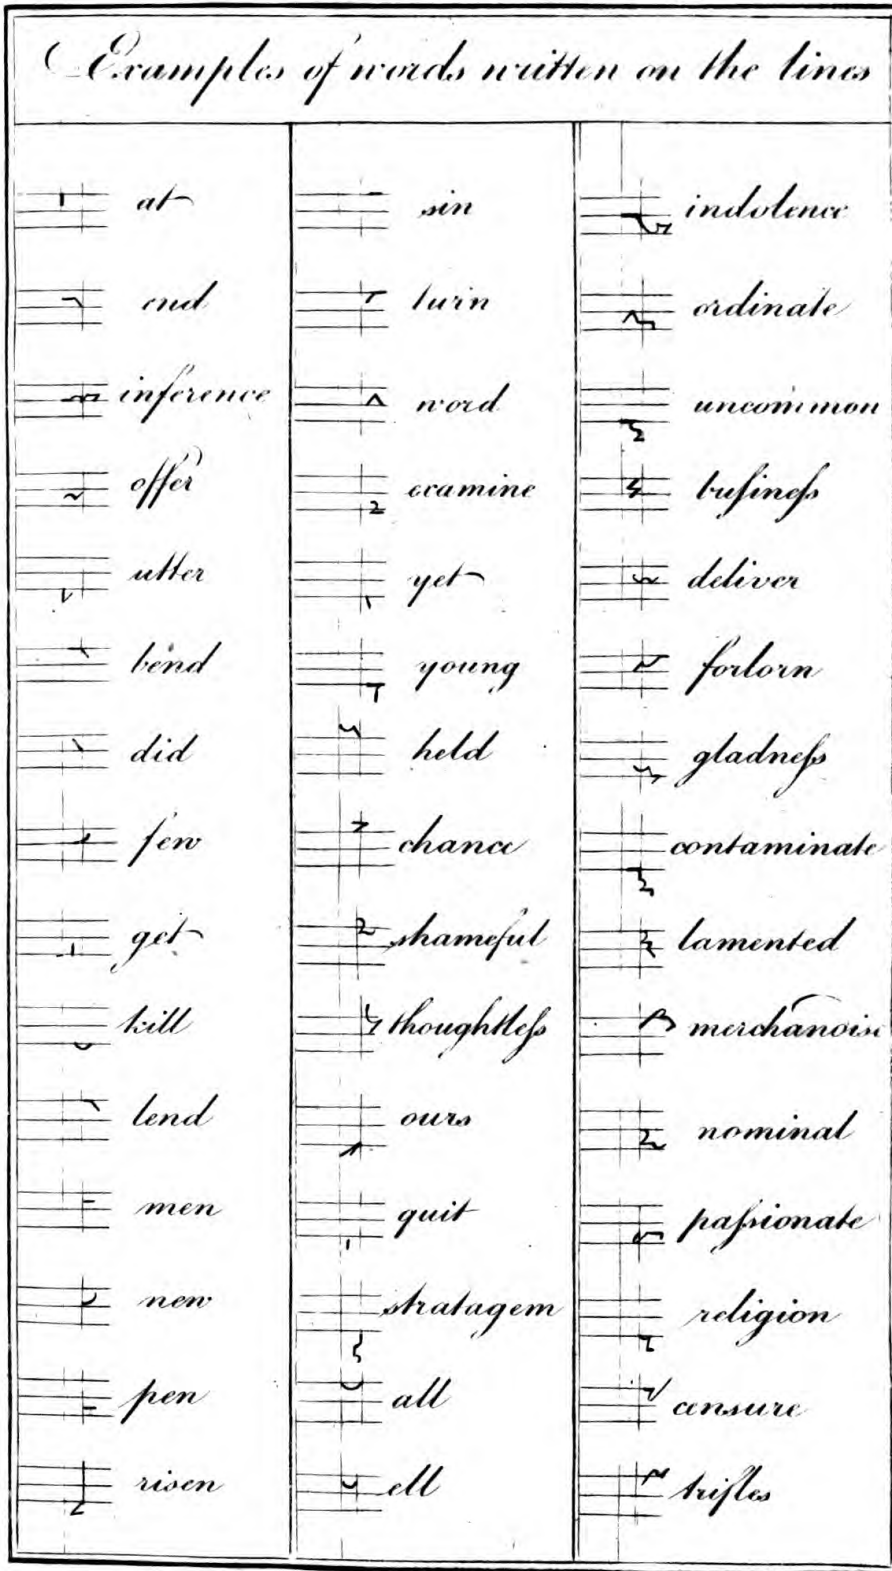 Examples of words written on the lines
at
end
inference
offer
utter
bend
did
few
get
kill
lend
men
new
pen
risen
sin
turin
word
examine
yet
young
held
chance
shameful
thoughtleſs
ours
quit
stratagem
all
ell
indolence
ordinate
uncommon
buſineſs
deliver
forlorn
gladneſs
contaminate
lamented
merchandise
nominal
paſsionate
religion
censure
trifles